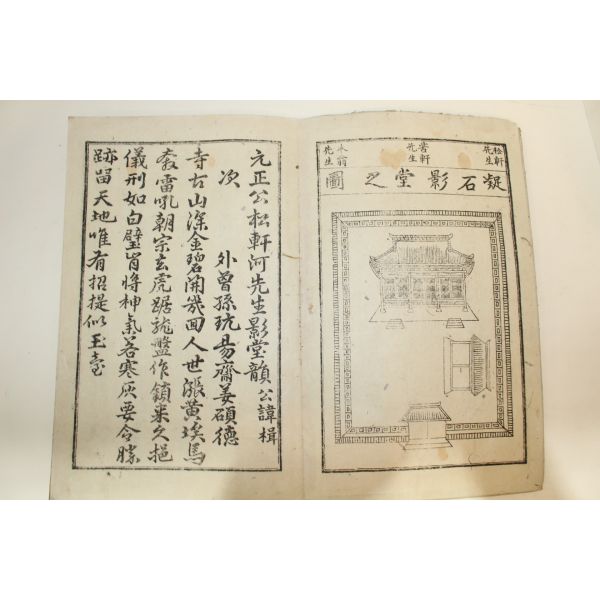 松軒先生
苦軒先生
木翁先生
凝石影堂之圖
元正公松軒河先生影堂韻公諱楫
次 外曾孫玩易齋姜碩德
寺古山深金碧開幾回人世漲黃埃馬
奔雷吼朝宗去虎踞龍盤作鎭來久挹
儀刑如白璧肯將神氣若寒灰要令勝
跡留天地唯有招提似玉臺